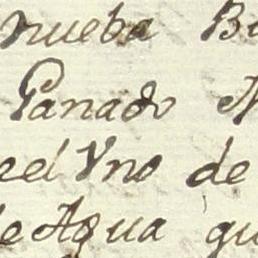 nueba B
Panado N
el Yno de
de Agua qu